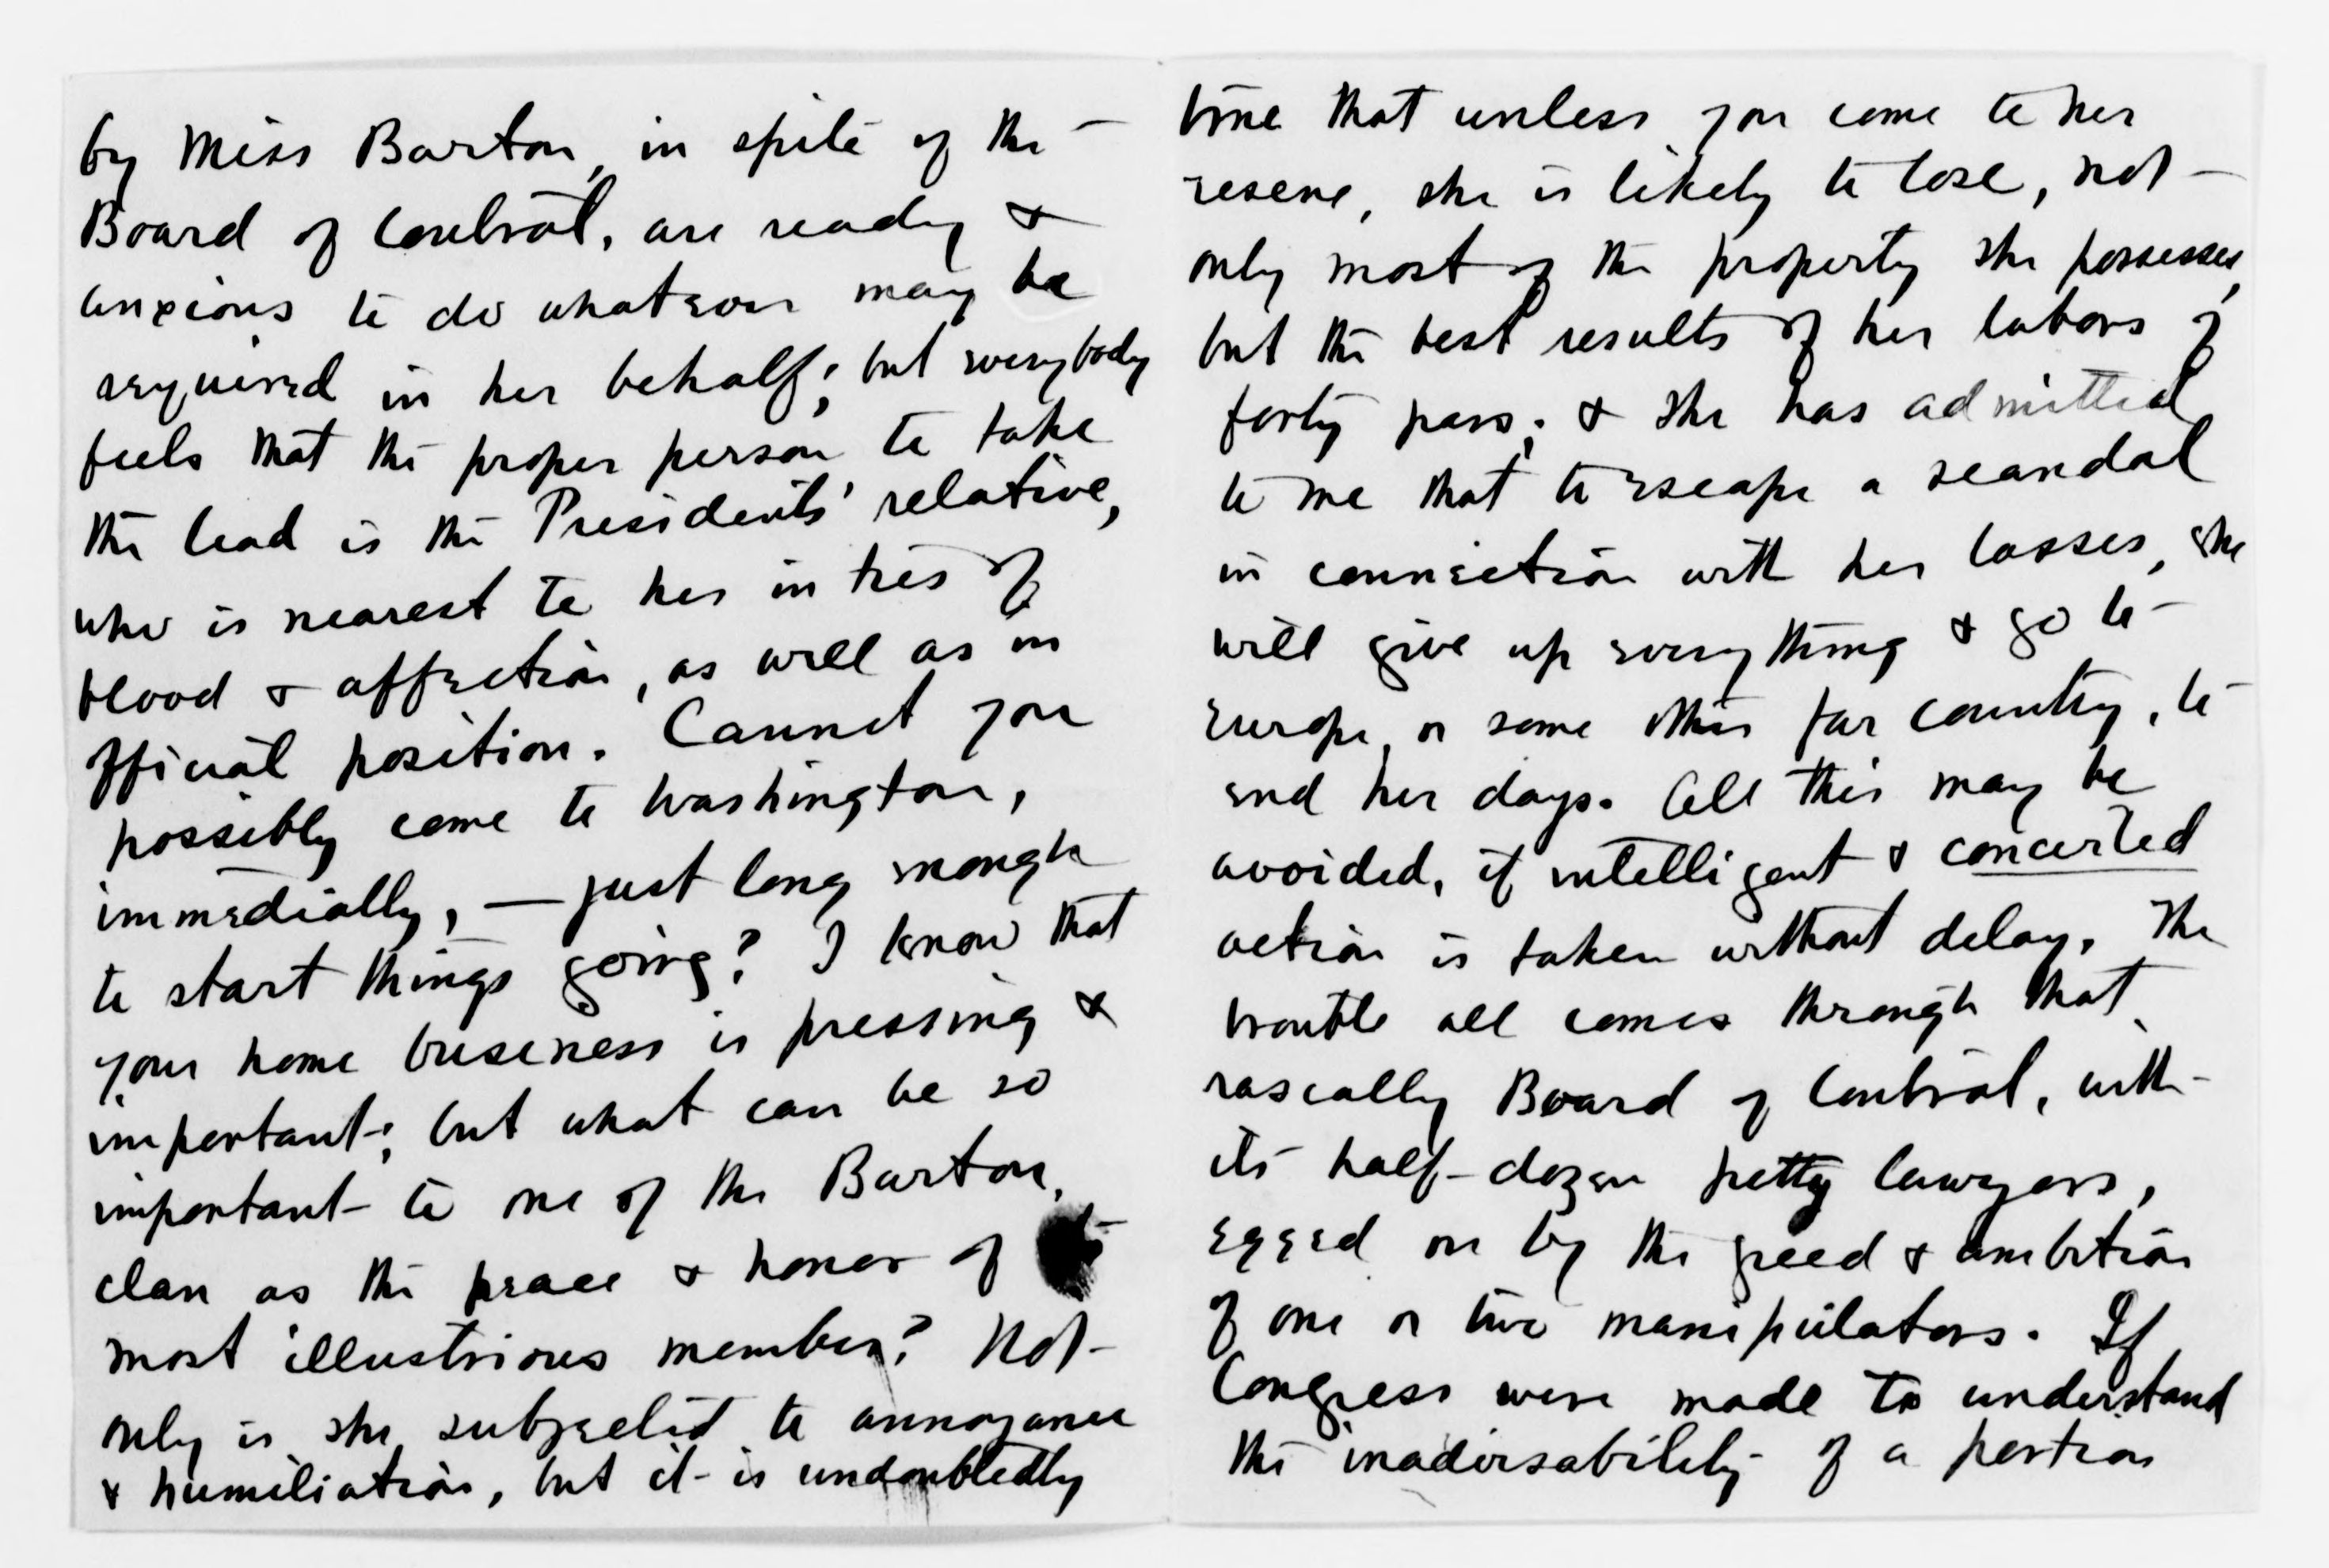 by Miss Barton, in spite of the
Board of Control, are ready &
anxious to do whatever may be
required in her behalf; but everybody
feels that the proper person to take
the lead is the Presidents' relative,
who is nearest to her in ties of
blood & affection, as well as in
official position. Cannot you
possibly come to Washington,
immediately, — just long enough
to start things going? I know that
your home business is pressing &
important; but what can be so
important to one of the Barton
clan as the peace & honor of
most illustrious member? Not
only is she subjected to annoyance
& humiliation, but it is undoubtedly
true that unless you come to her
rescue, she is likely to lose, not
only most of the property she possesses,
but the best results of her labors of
forty years; & she has admitted
to me that to escape a scandal
in connection with her losses, she
will give up everything & go to
Europe, or some other far country, to
end her days. All this may be
avoided, if intelligent & concerted
action is taken without delay. The
trouble all comes through that
rascally Board of Control, with
its half-dozen petty lawyers,
egged on by the greed & ambition
of one or two manipulators. If
Congress were made to understand
the inadvisability of a portion